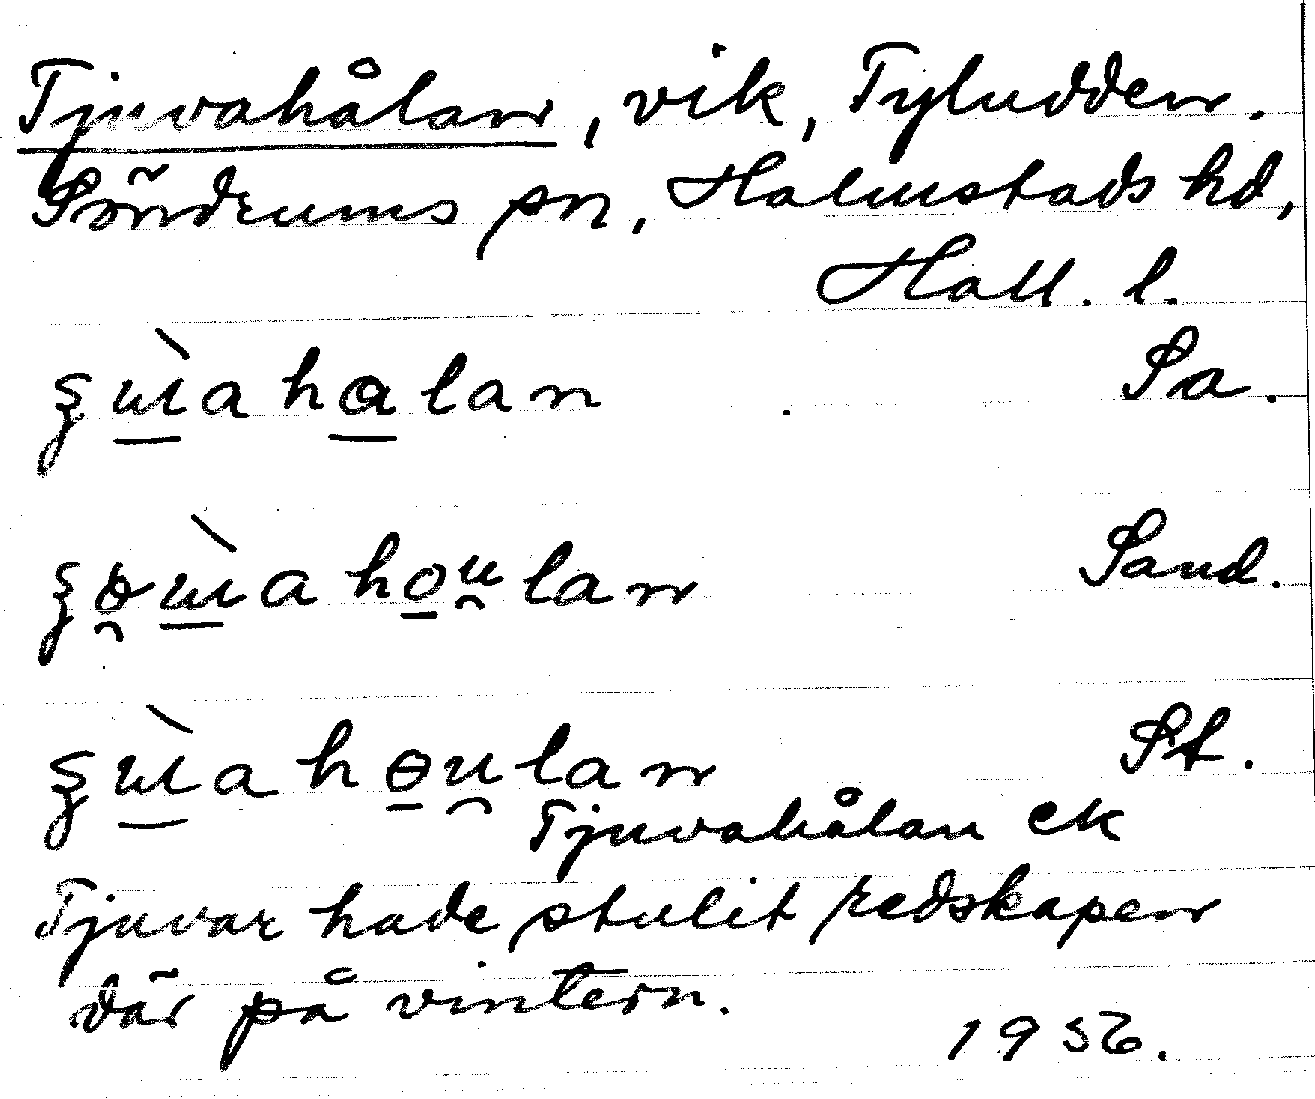 Tjuvahålan, vik, Tyludden.
Söndrums sn, Halmstads hd,
Hall. l.
Sa.
Sand.
St.
Tjuvahålan ek
Tjuvar hade stulit redskapen
där på vintern.
1956.